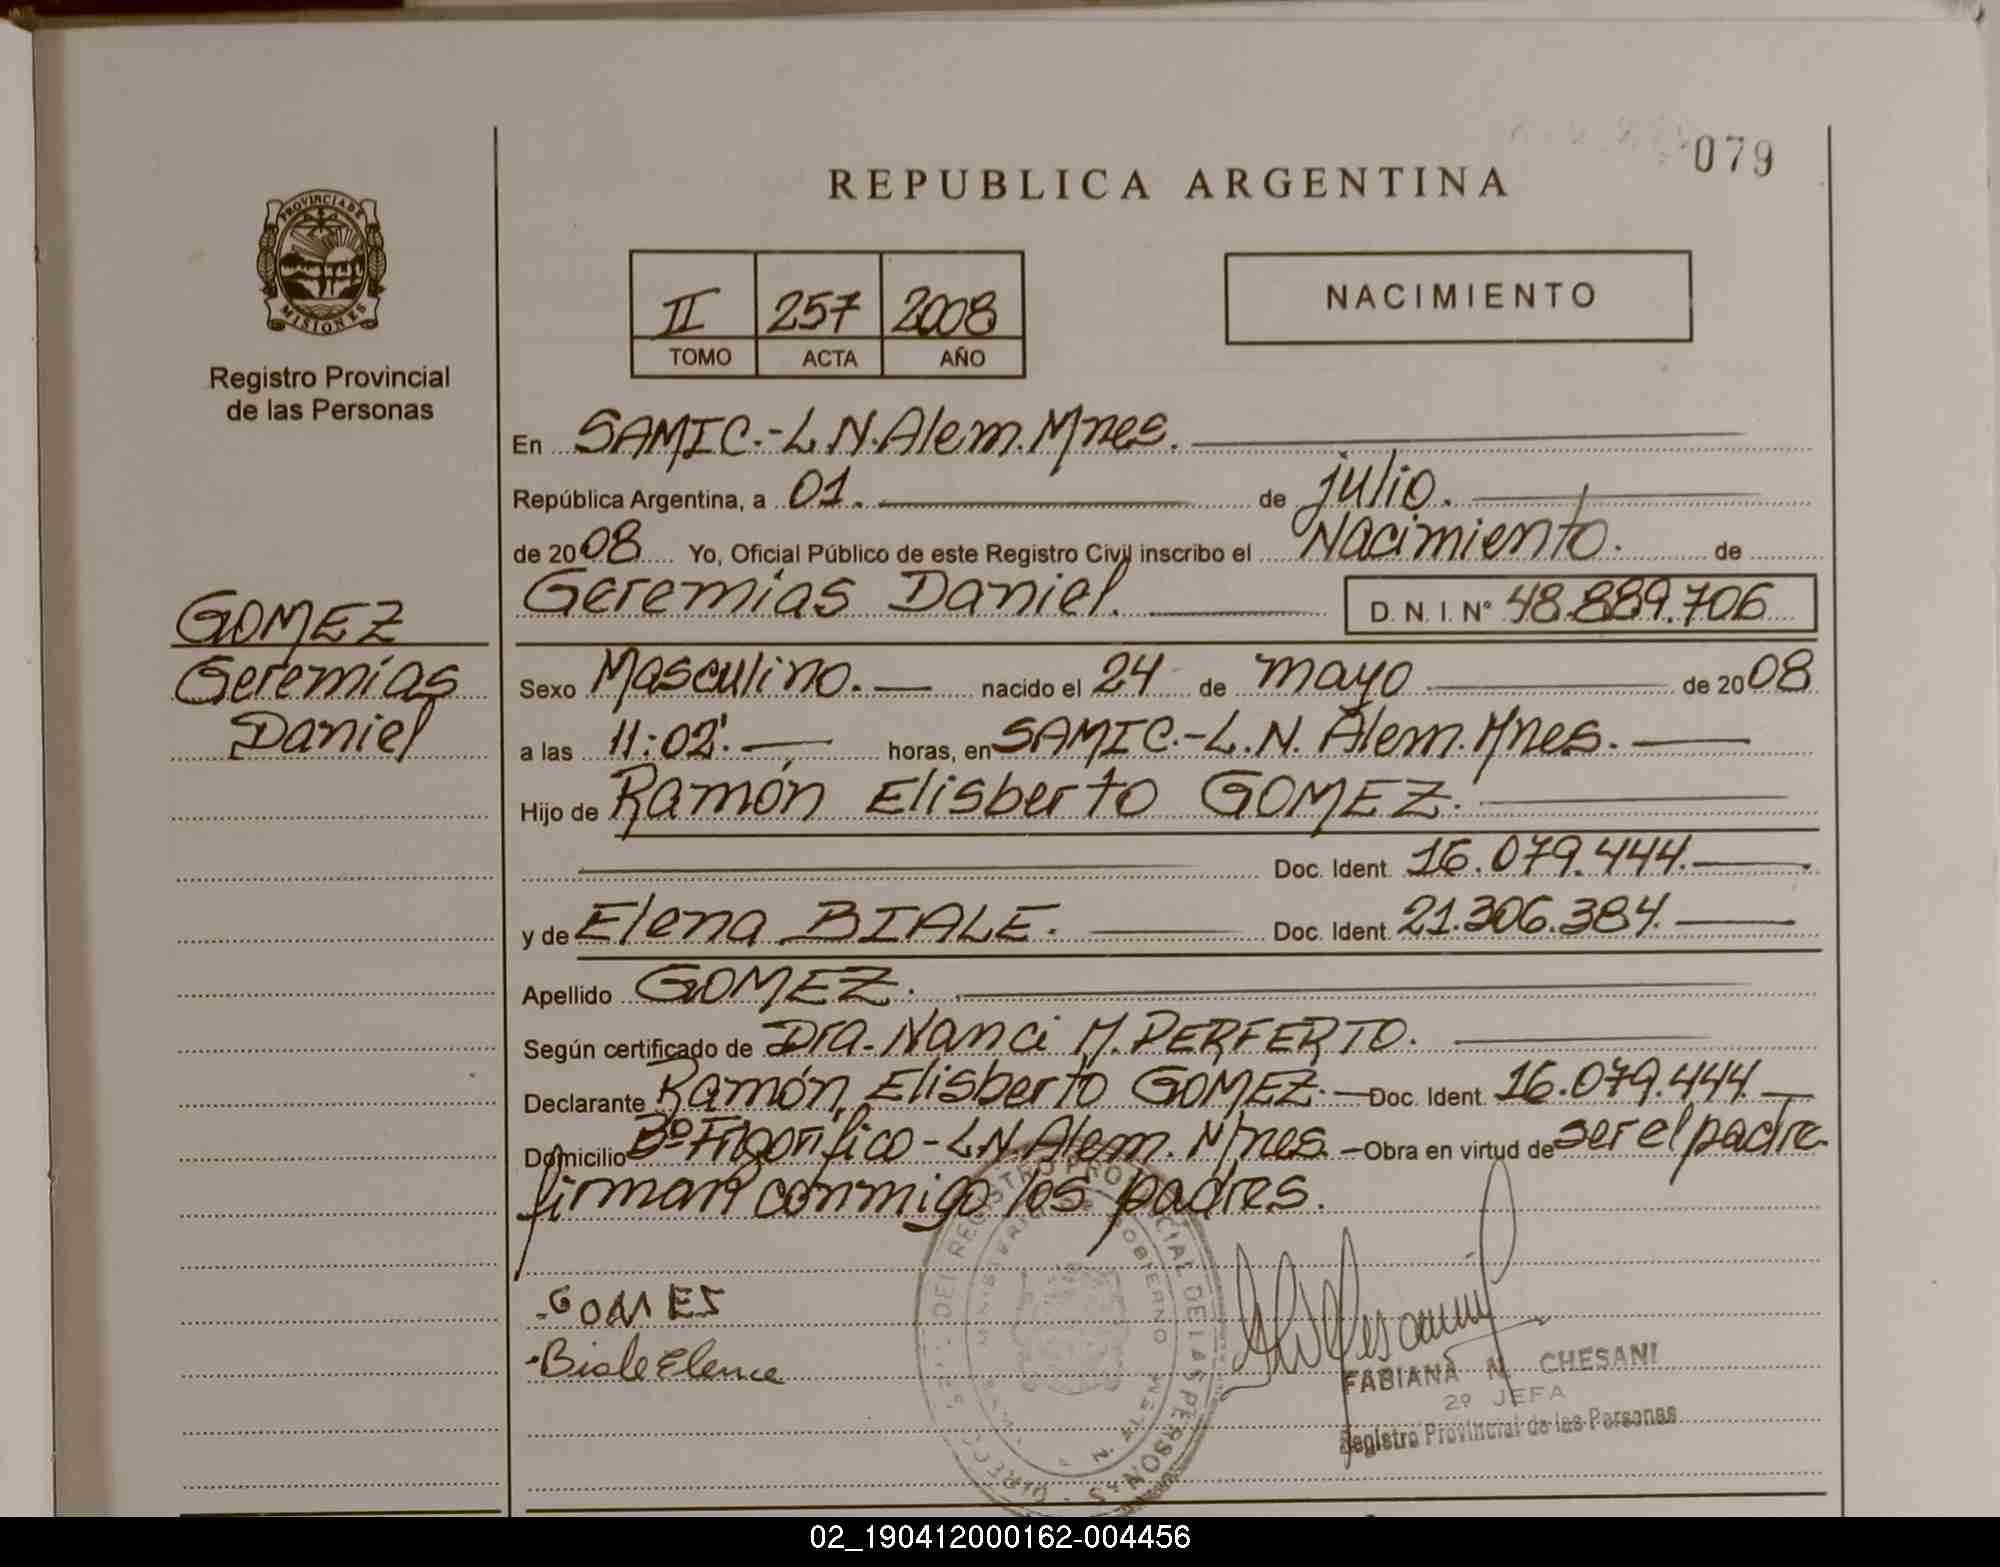 079
REPUBLICA ARGENTINA
PROVINCIA DE
MISIONES
Registro Provincial
de las Personas
II 257 2008
TOMO ACTA AÑO
NACIMIENTO
En SAMIC.-L.N.Alem.Mnes.
República Argentina, a 01. de julio.
de 2008 Yo, Oficial Público de este Registro Civil inscribo el Nacimiento. de
Geremías Daniel. D. N. I. Nº 48.889.706
GOMEZ
Geremías
Daniel
Sexo Masculino. nacido el 24 de mayo de 2008
a las 11:02'. horas, en SAMIC.-L.N. Alem.Mnes.
Hijo de Ramón Elisberto GOMEZ.
Doc. Ident. 16.079.444.
y de Elena BIALE. Doc. Ident. 21.306.384.
Apellido GOMEZ.
Según certificado de Dra. Nanci M. PERFERTO.
Declarante Ramón Elisberto GOMEZ. Doc. Ident. 16.079.444.
Domicilio Bº Frigorífico-L.N.Alem.Mnes. Obra en virtud de ser el padre
firman conmigo los padres.
GOMES
Biale Elena
FABIANA N. CHESANI
2º JEFA
Registro Provincial de las Personas
02_190412000162-004456